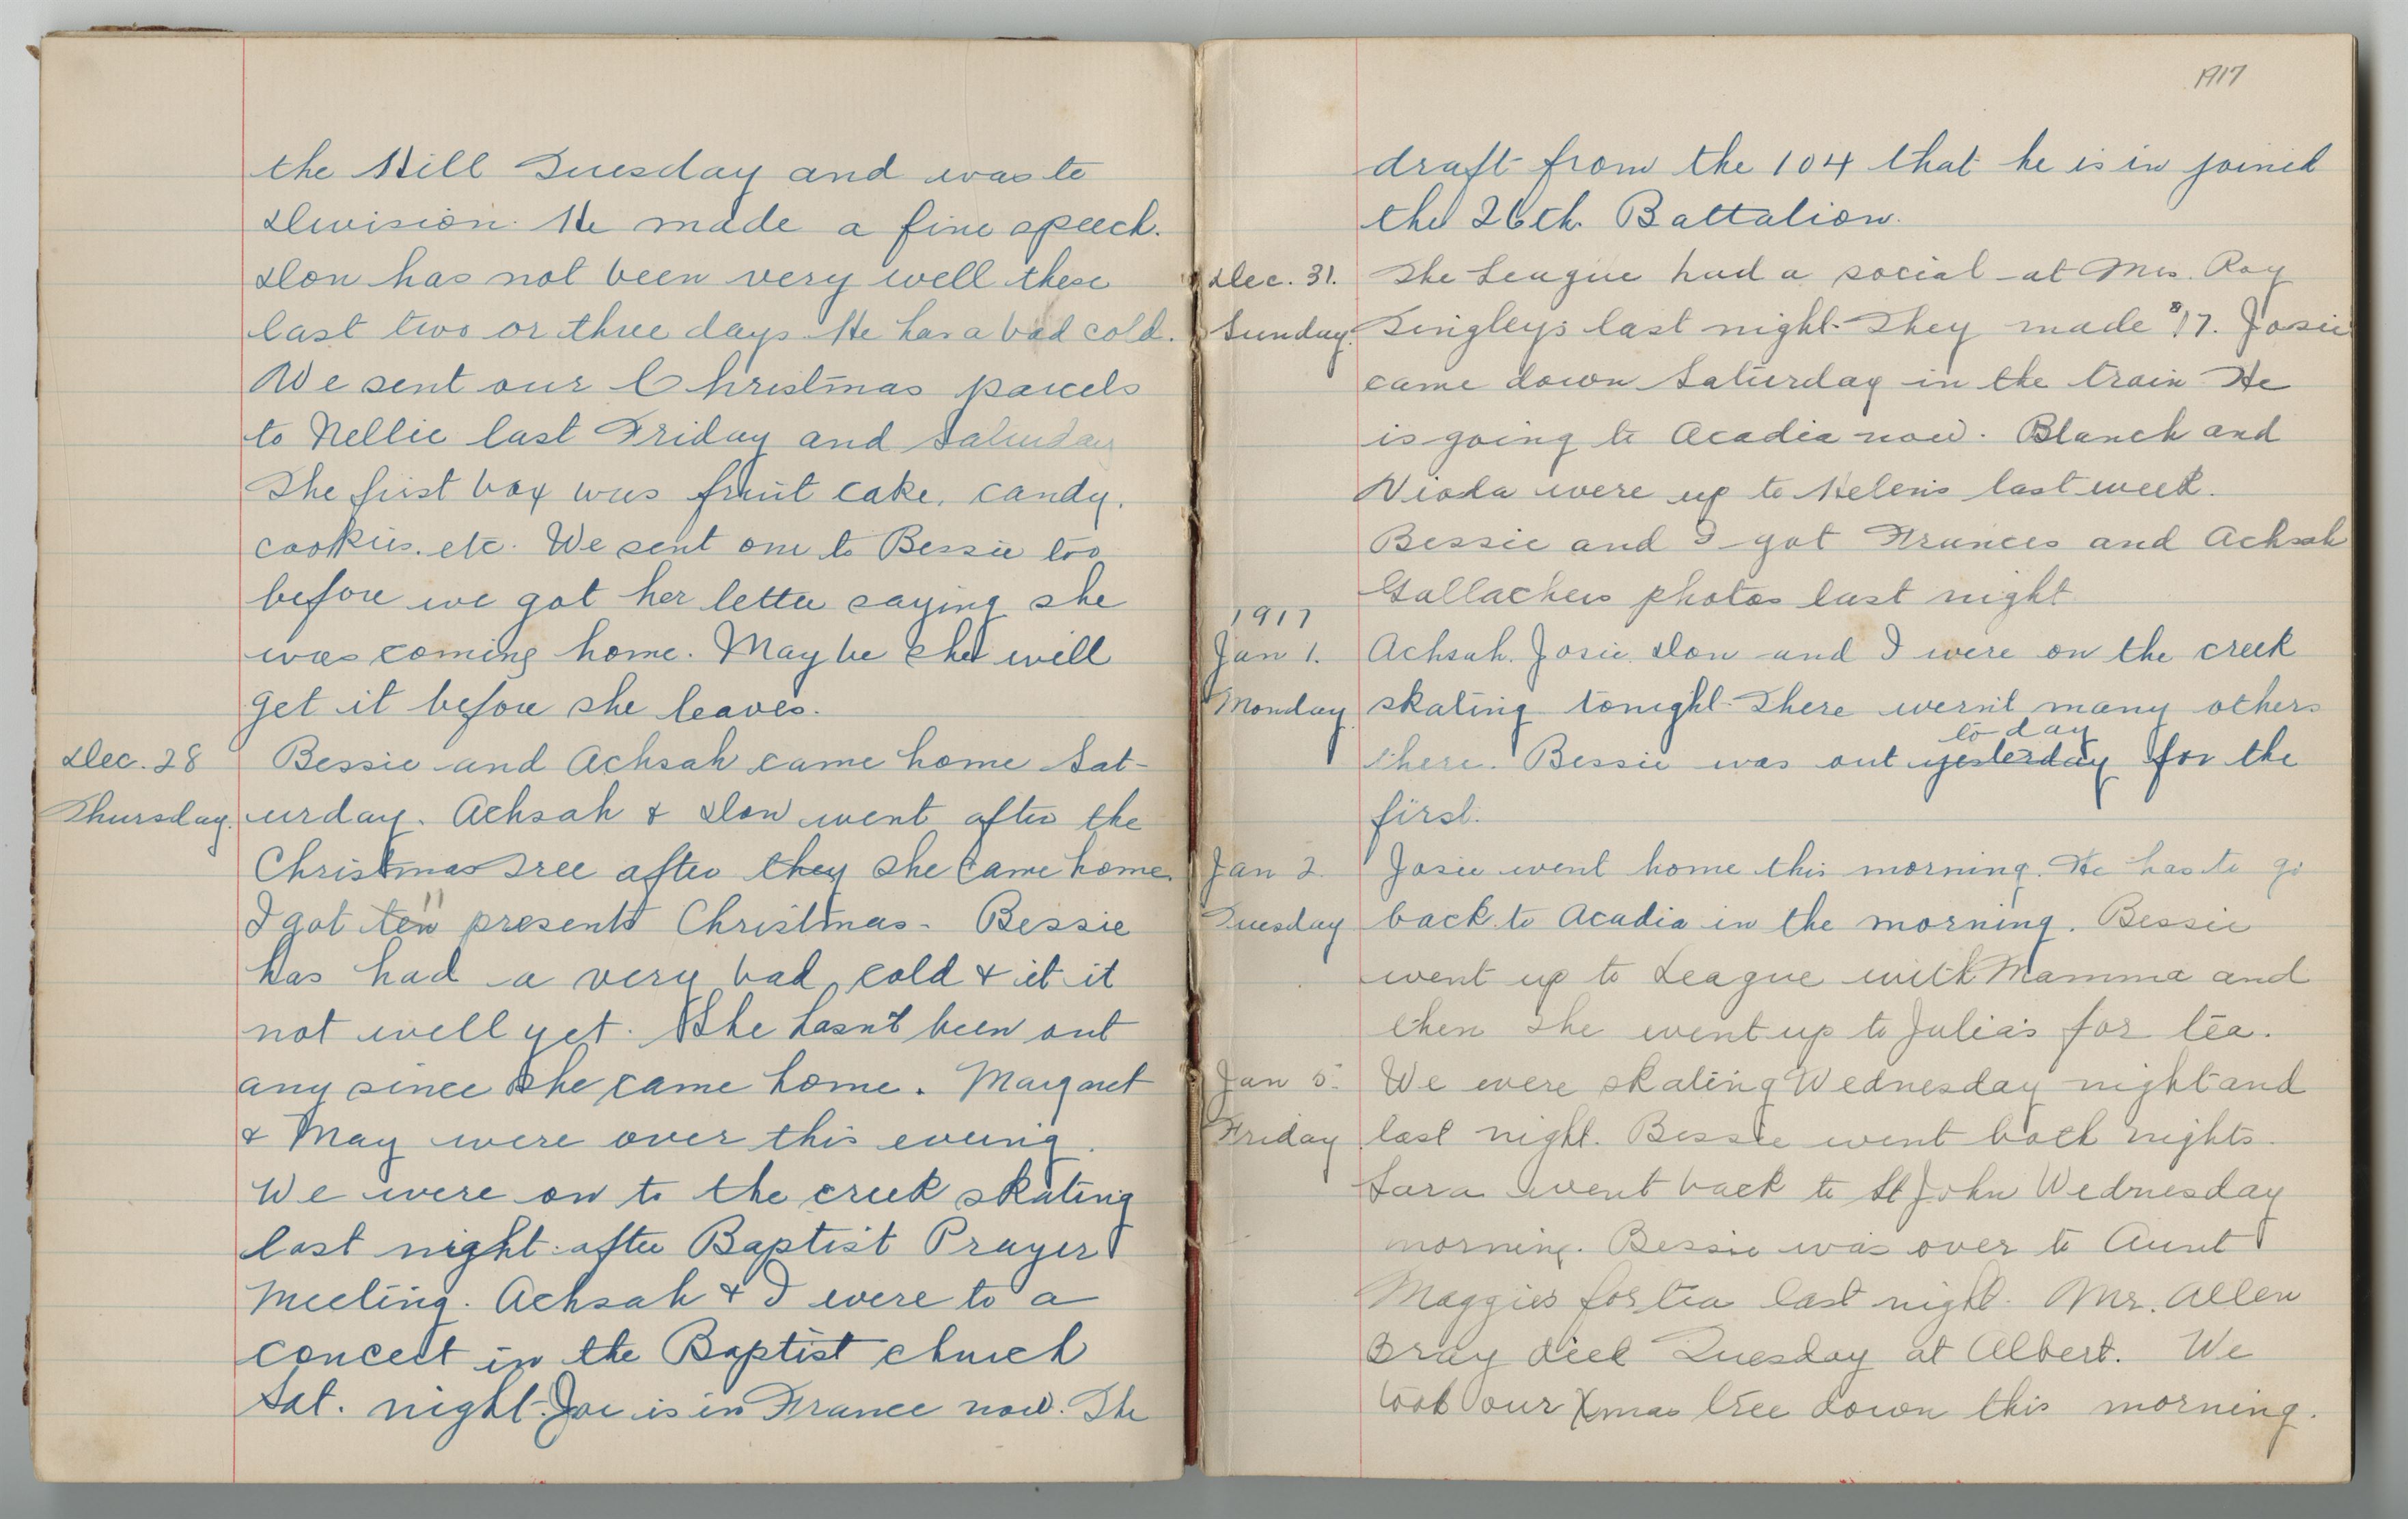 the Hill Tuesday and was to
Division. He made a fine speech.
Don has not been very well these
last two or three days. He has a bad cold.
We sent our Christmas parcels
to Nellie last Friday and Saturday
The first box was fruit cake, candy,
cookies, etc. We sent one to Bessie too
before we got her letter saying she
was coming home. May be she will
get it before she leaves.
Dec. 28 Bessie and Achsah came home Sat-
Thursday. urday. Achsah & Don went after the
Christmas tree after they she came home.
I got ten 11 presents Christmas. Bessie
has had a very bad cold & it it
not well yet. She hasn't been out
any since she came home. Margaret
& May were over this evening.
We were on to the creek skating
last night after Baptist Prayer
Meeting. Achsah & I were to a
concert in the Baptist church
Sat. night. Joe is in France now. The
1917
draft from the 104 that he is in joined
the 26th Battalion.
Dec. 31. The League had a social at Mrs. Roy
Sunday. Tingley's last night. They made $17. Josie
came down Saturday in the train. He
is going to Acadia now. Blanch and
Vioda were up to Helen's last week.
Bessie and I got Frances and Achsah
Gallachers photos last night
1917
Jan 1. Achsah, Josie, Don and I were on the creek
Monday skating tonight. There wern't many others
there. Bessie was out yesterday to day for the
first.
Jan 2. Josie went home this morning. He has to go
Tuesday back to Acadia in the morning. Bessie
went up to League with Mamma and
then she went up to Julia's for tea.
Jan 5. We were skating Wednesday night and
Friday last night. Bessie went both nights.
Sara went back to St John Wednesday
morning. Bessie was over to Aunt
Maggies for tea last night. Mr. Allen
Bray died Tuesday at Albert. We
took our Xmas tree down this morning.